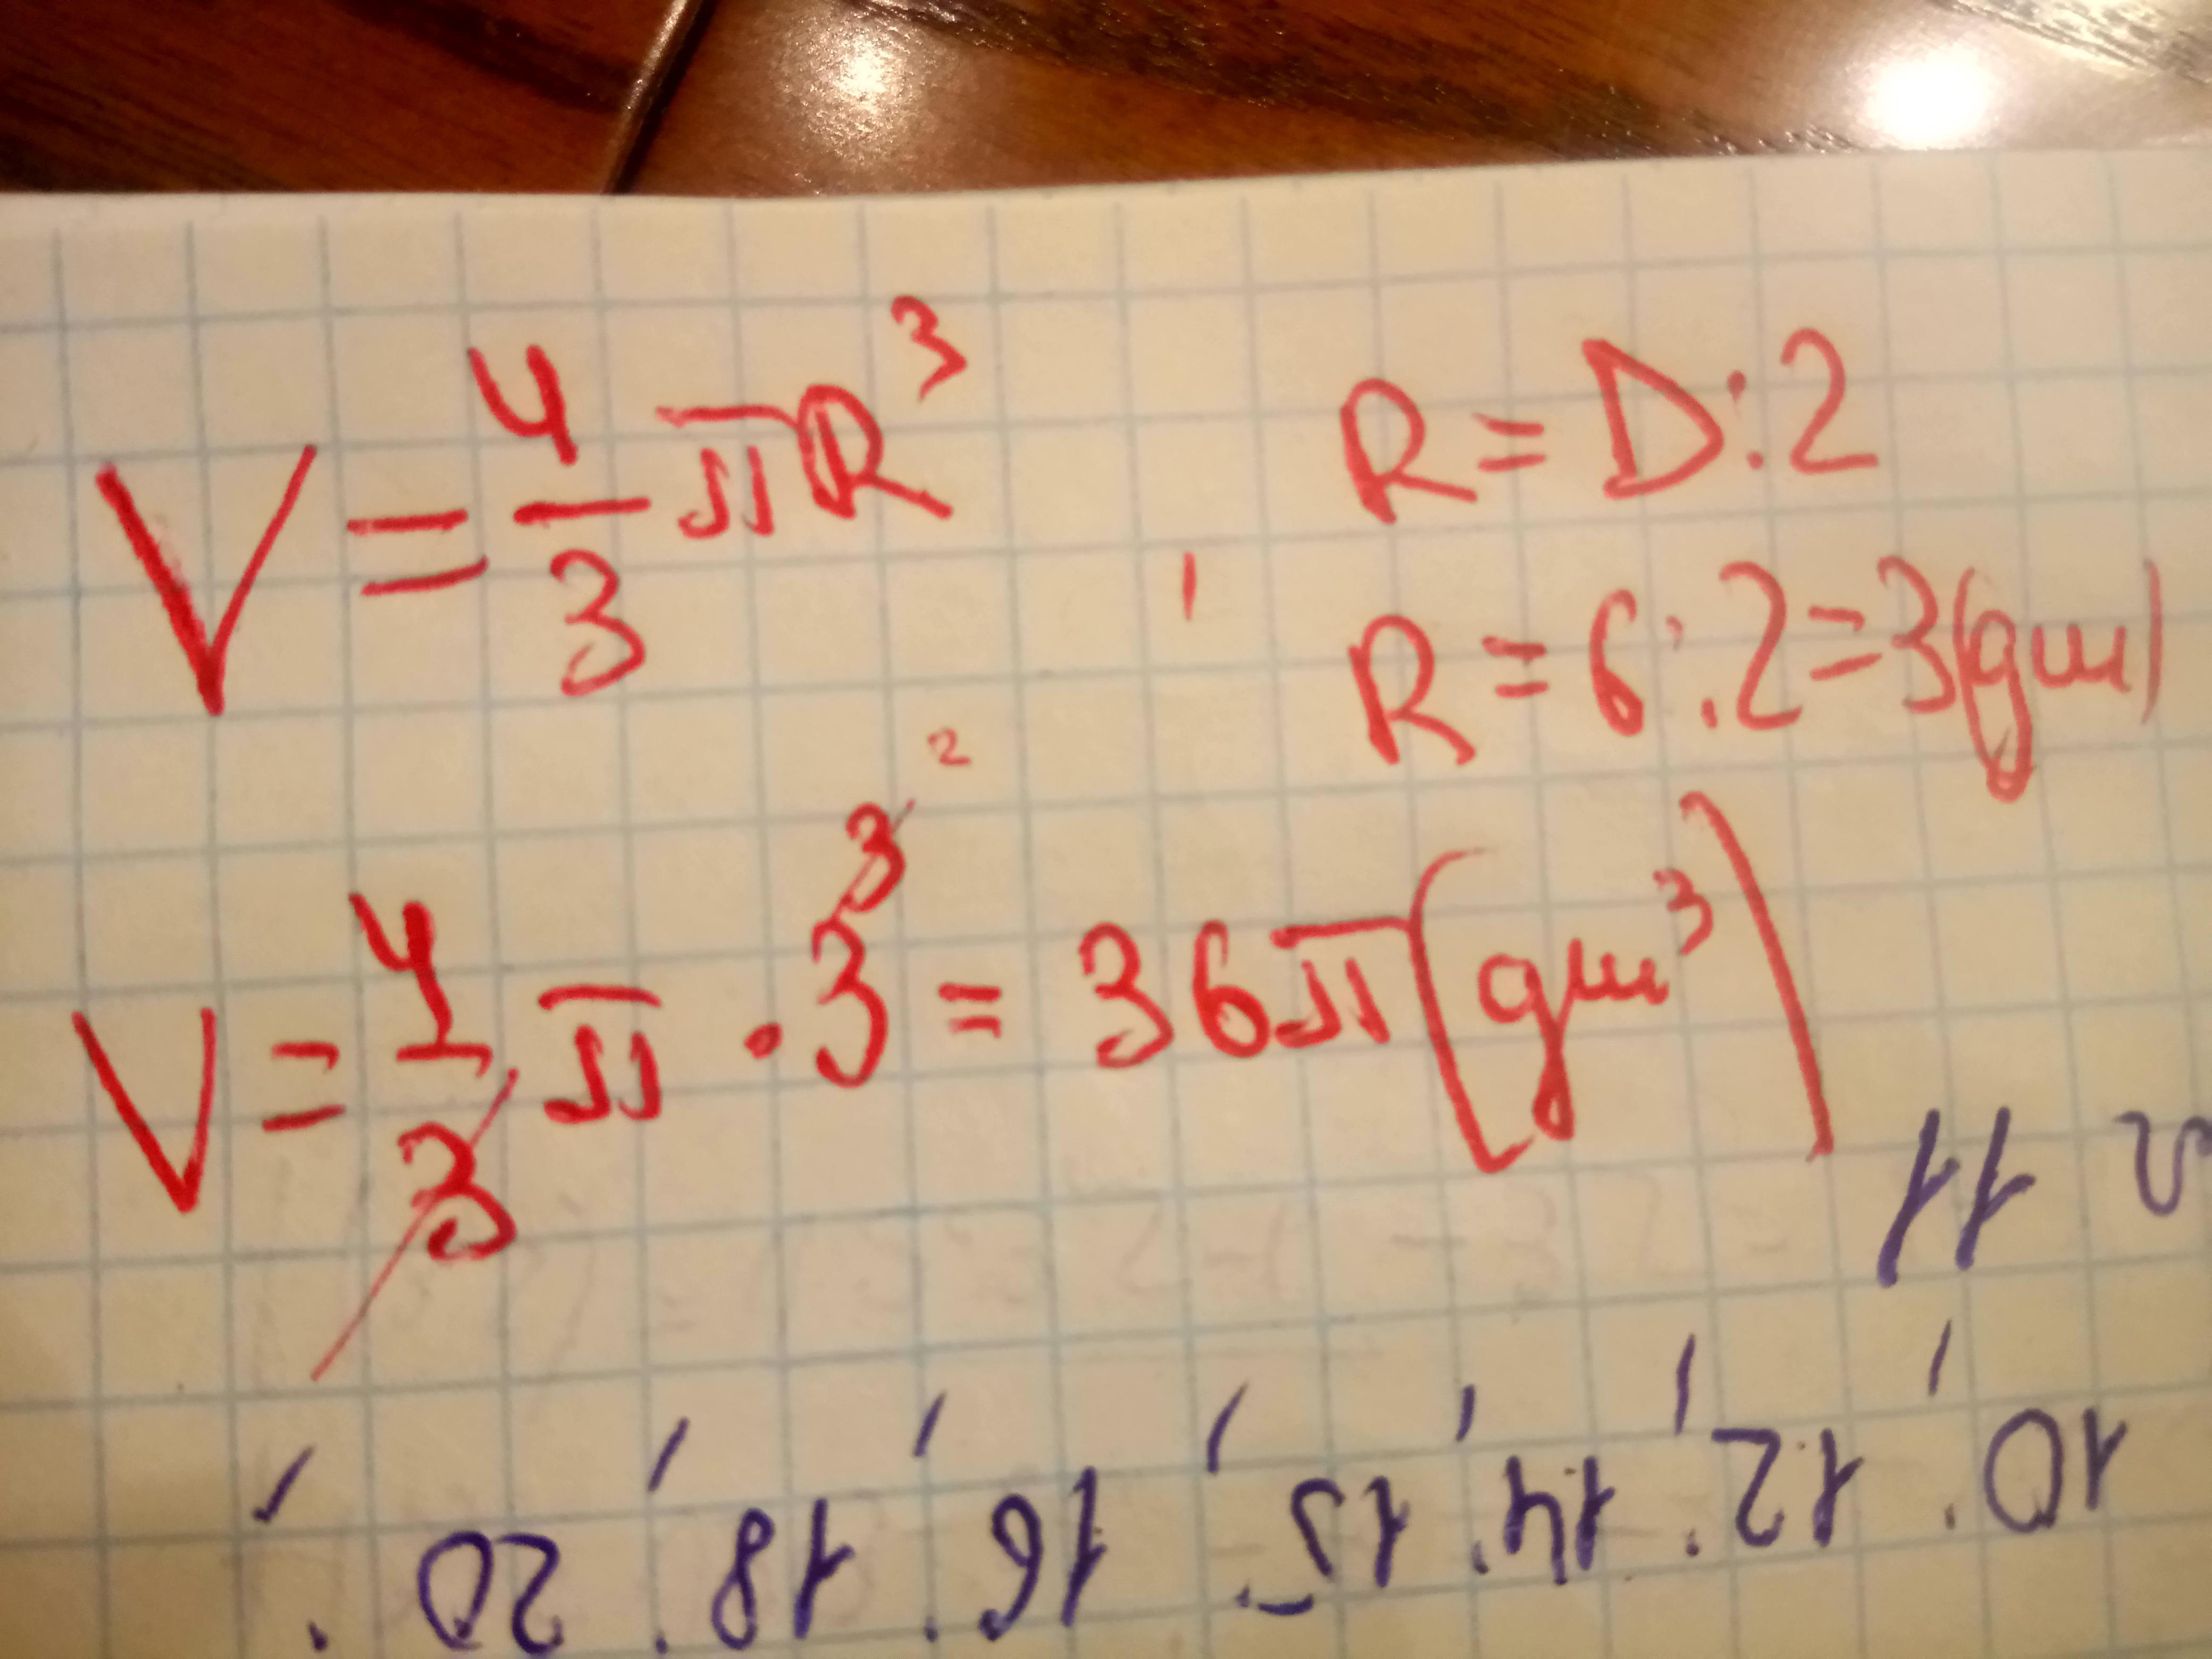 V = 4/3 πR³
R = D:2
R = 6:2 = 3(дм)
V = 4/3 π · 3³ ² = 36π(дм³)
11
10. 12. 14. 15. 16. 18. 20.